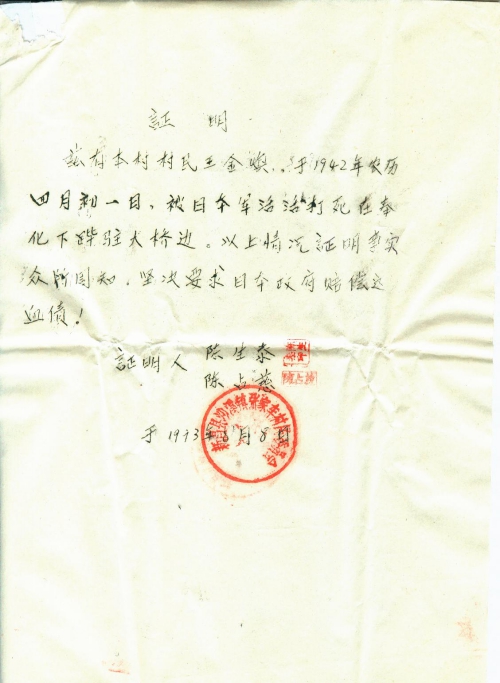 証 明
兹有本村村民王金焕，于1942年农历
四月初一日，被日本军活活打死在奉
化下跸驻大桥边。以上情况証明事实
众所周知，坚决要求日本政府赔偿这
血债！
証明人 陈生泰
陈占慈
于1993年8月8日